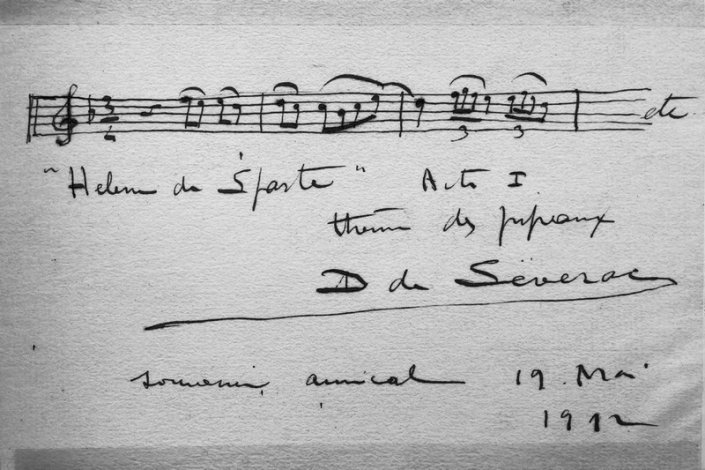 etc
"Hélène de Sparte" Acte I
thème des pipeaux
D de Séverac
souvenir amical 19 Mai
1912